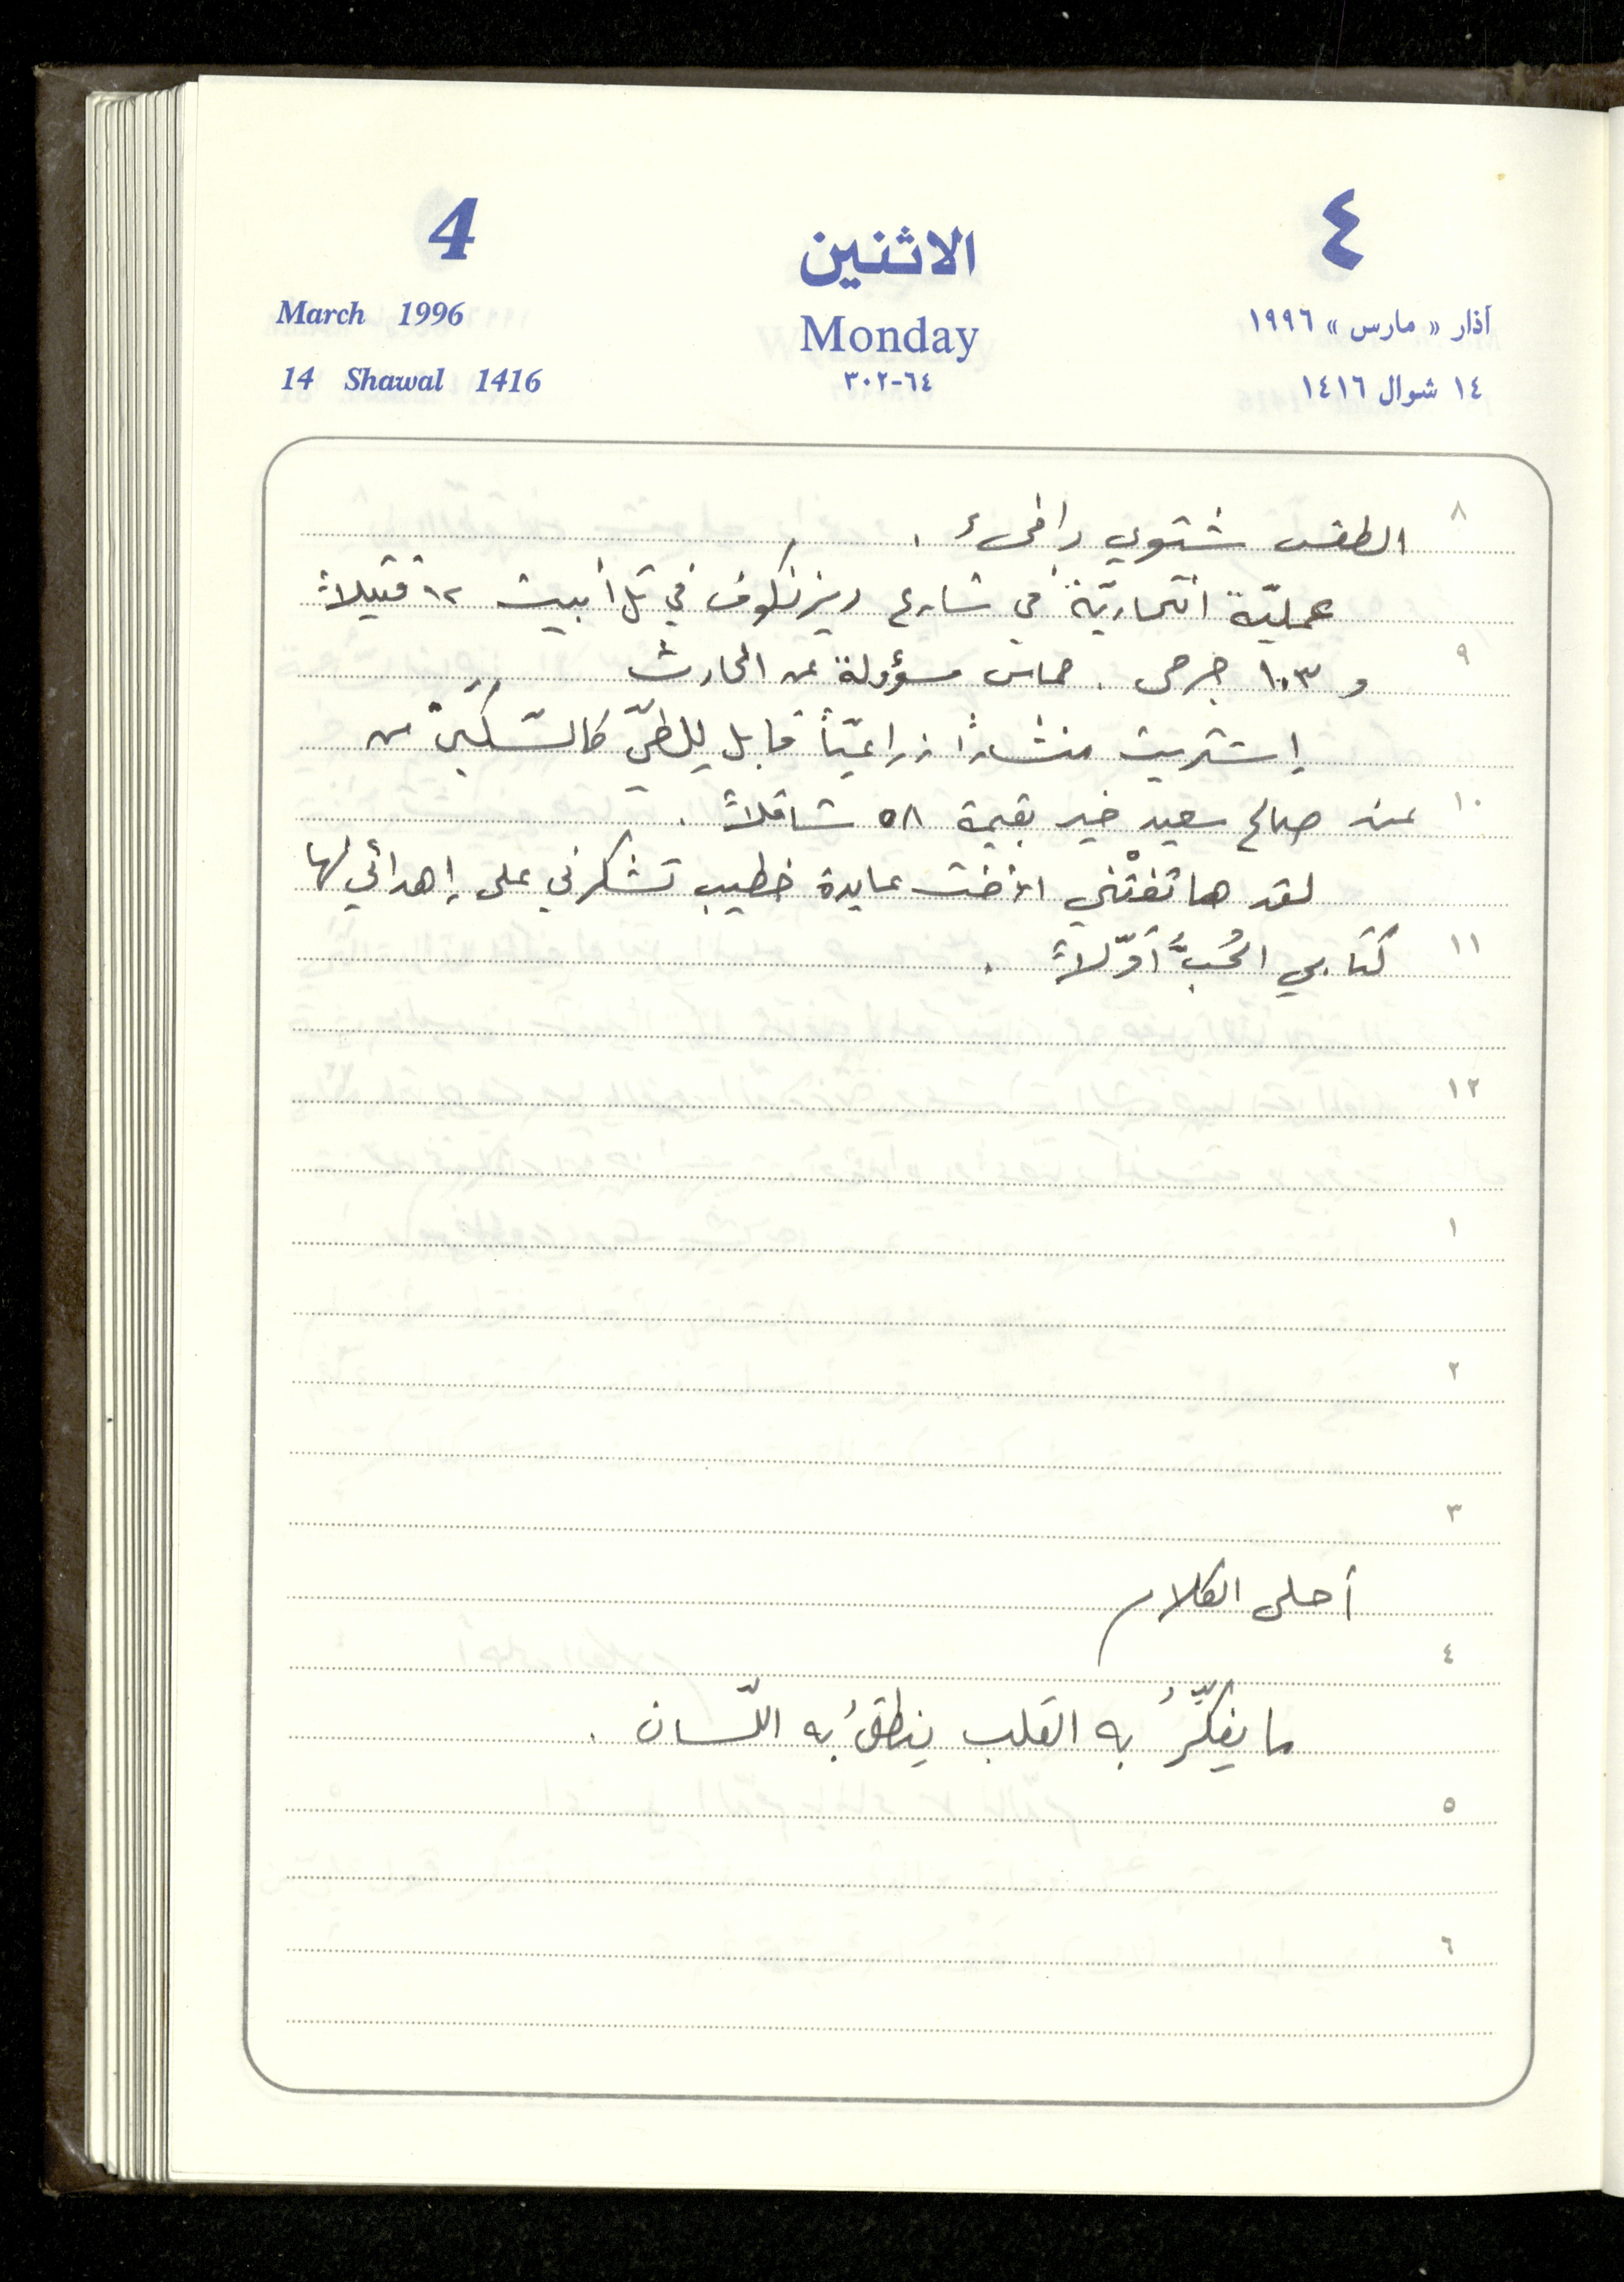 4
الاثنين
٤
March 1996
Monday
آذار « مارس » ١٩٩٦
14 Shawal 1416
٦٤-٣٠٢
١٤ شوال ١٤١٦
٨
الطقس شتوي دافىء .
عمليّة انتحاريّة في شارع ديزنكوف في تل أبيب ١٢ قتيلاً
٩
و ١٠٣ جرحى . حماس مسؤولة عن الحادث
إشتريت منشاراً زراعيّاً قابل للطيّ كالسّكّين من
١٠
عند صالح سعيد خير بقيمة ٥٨ شاقلاً .
لقد هاتفتْني الأخت عايدة خطيب تشكرني على إهدائي لها
١١
كتابي الحُبُّ أوّلاً .
١٢
١
٢
٣
أحلى الكلام
٤
ما يفكِّرُ به القلب ينطقُ به اللّسان .
٥
٦